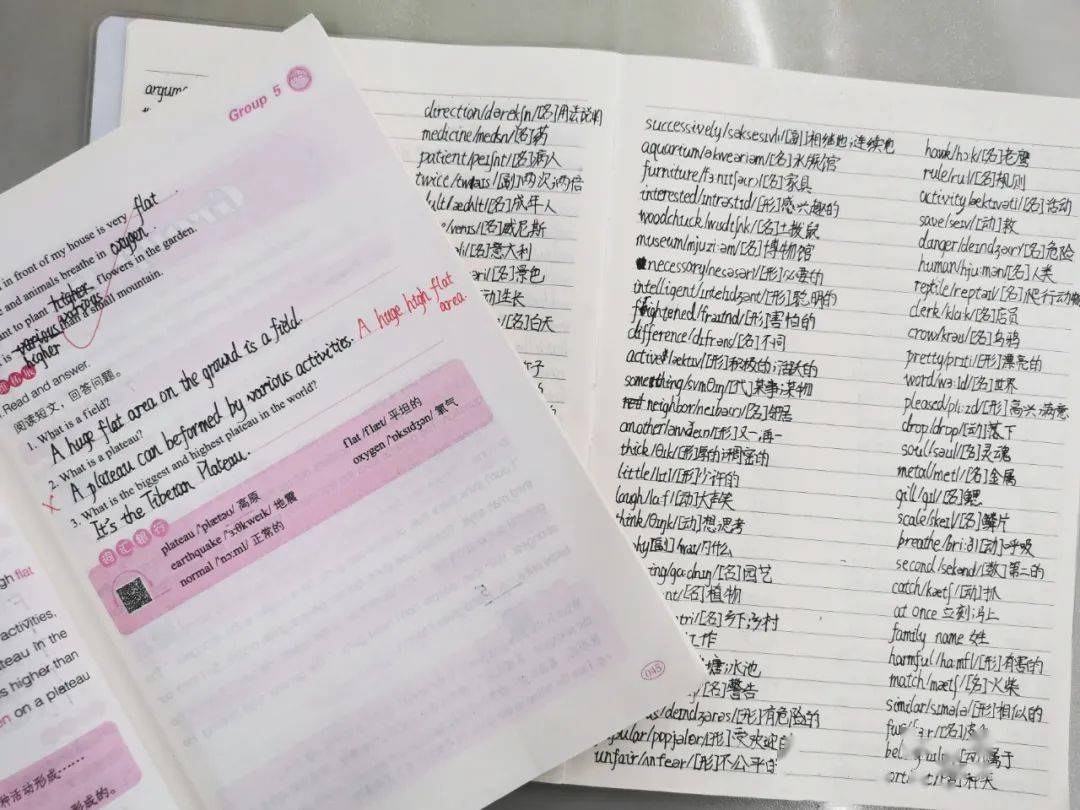 Group 5
in front of my house is very flat
and animals breathe in oxygen.
to plant higher flowers in the garden.
is various than a small mountain.
higher
Read and answer.
阅读短文，回答问题。
1. What is a field?
A huge flat area on the ground is a field.
2. What is a plateau?
A plateau can beformed by various activities. A huge high flat area.
3. What is the biggest and highest plateau in the world?
It's the Tibetan Plateau.
词汇银行
plateau /ˈplætəʊ/ 高原
earthquake /ˈɜːθkweɪk/ 地震
normal /ˈnɔːml/ 正常的
flat /flæt/ 平坦的
oxygen /ˈɒksɪdʒən/ 氧气
045
flat
activities.
in the
higher than
on a plateau
种活动形成……
形成的。
direction/dərekʃn/[名]用法说明
medicine/medsn/[名]药
patient/peɪʃnt/[名]病人
twice/twaɪs/[副]两次;两倍
[名]成年人
[名]威尼斯
[名]意大利
[名]景色
生长
[名]白天
successively/səksesɪvli/[副]相继地;连续地
aquarium/əkweəriəm/[名]水族馆
furniture/fɜːnɪtʃər/[名]家具
interested/ɪntrəstɪd/[形]感兴趣的
woodchuck/wʊdtʃʌk/[名]土拨鼠
museum/mjuziːəm/[名]博物馆
necessary/nesəsəri/[形]必要的
intelligent/ɪntelɪdʒənt/[形]聪明的
frightened/fraɪtnd/[形]害怕的
difference/dɪfrəns/[名]不同
active/æktɪv/[形]积极的;活跃的
something/sʌmθɪŋ/[代]某事;某物
neighbor/neɪbər/[名]邻居
another/ənʌðər/[形]又一;再一
thick/θɪk/[形]厚的;稠密的
little/lɪtl/[形]少许的
laugh/laf/[动]大声笑
think/θɪŋk/[动]想;思考
[副]/waɪ/为什么
[名]园艺
[名]植物
[名]乡下;乡村
工作
塘;水池
[名]警告
/deɪndʒərəs/[形]有危险的
/pɒpjələr/[形]受欢迎的
unfair/ʌnfeər/[形]不公平的
hawk/hɔk/[名]老鹰
rule/rul/[名]规则
activity/æktɪvəti/[名]活动
save/seɪv/[动]救
danger/deɪndʒər/[名]危险
human/hjuːmən/[名]人类
reptile/reptaɪl/[名]爬行动物
clerk/klak/[名]店员
crow/krəʊ/[名]乌鸦
pretty/prɪti/[形]漂亮的
word/wɜːld/[名]世界
pleased/pliːzd/[形]高兴;满意
drop/drop/[动]落下
soul/səʊl/[名]灵魂
metal/metl/[名]金属
gill/gɪl/[名]鳃
scale/skeɪl/[名]鳞片
breathe/briːð/[动]呼吸
second/sekənd/[数]第二的
catch/kætʃ/[动]抓
at once 立刻;马上
family name 姓
harmful/haːmfl/[形]有害的
match/mætʃ/[名]火柴
similar/sɪmələ/[形]相似的